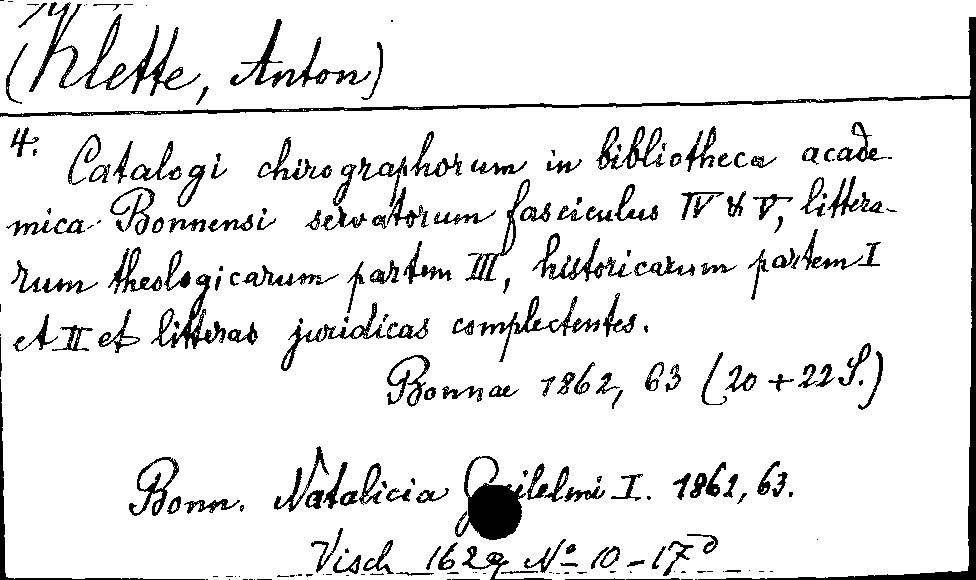 (Klette, Anton)
4. Catalogi chirographorum in bibliotheca acade-
mica Bonnensi servatorum fasciculus IV & V, littera-
rum theologicarum partem III, historicarum partem I
et II et litteras juridicas complectentes.
Bonnae 1862, 63 (20 + 22 S.)
Bonn. Natalicia Guilelmi I. 1862, 63.
Visch 162 No 10-17